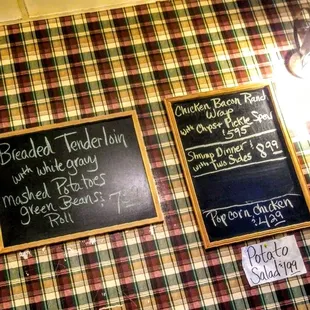 Breaded Tenderloin
with white gravy
Mashed Potatoes
green Beans
Roll
7
Chicken Bacon Ranch
Wrap
with Chips & Pickle Spear
$5.95
Shrimp Dinner
with Two Sides 8.99
Popcorn Chicken
$4.29
Potato
Salad $1.99